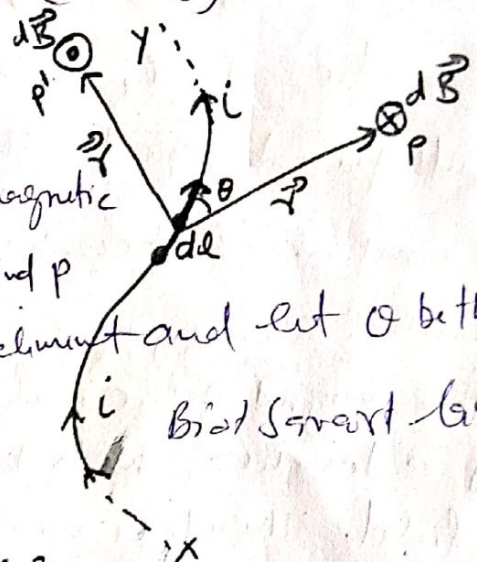 dB⃗
Y
i
dB⃗
P'
P
r⃗
θ
r⃗
agnetic
dl
nd P
element and let θ be th
i
Biot Savart la
X